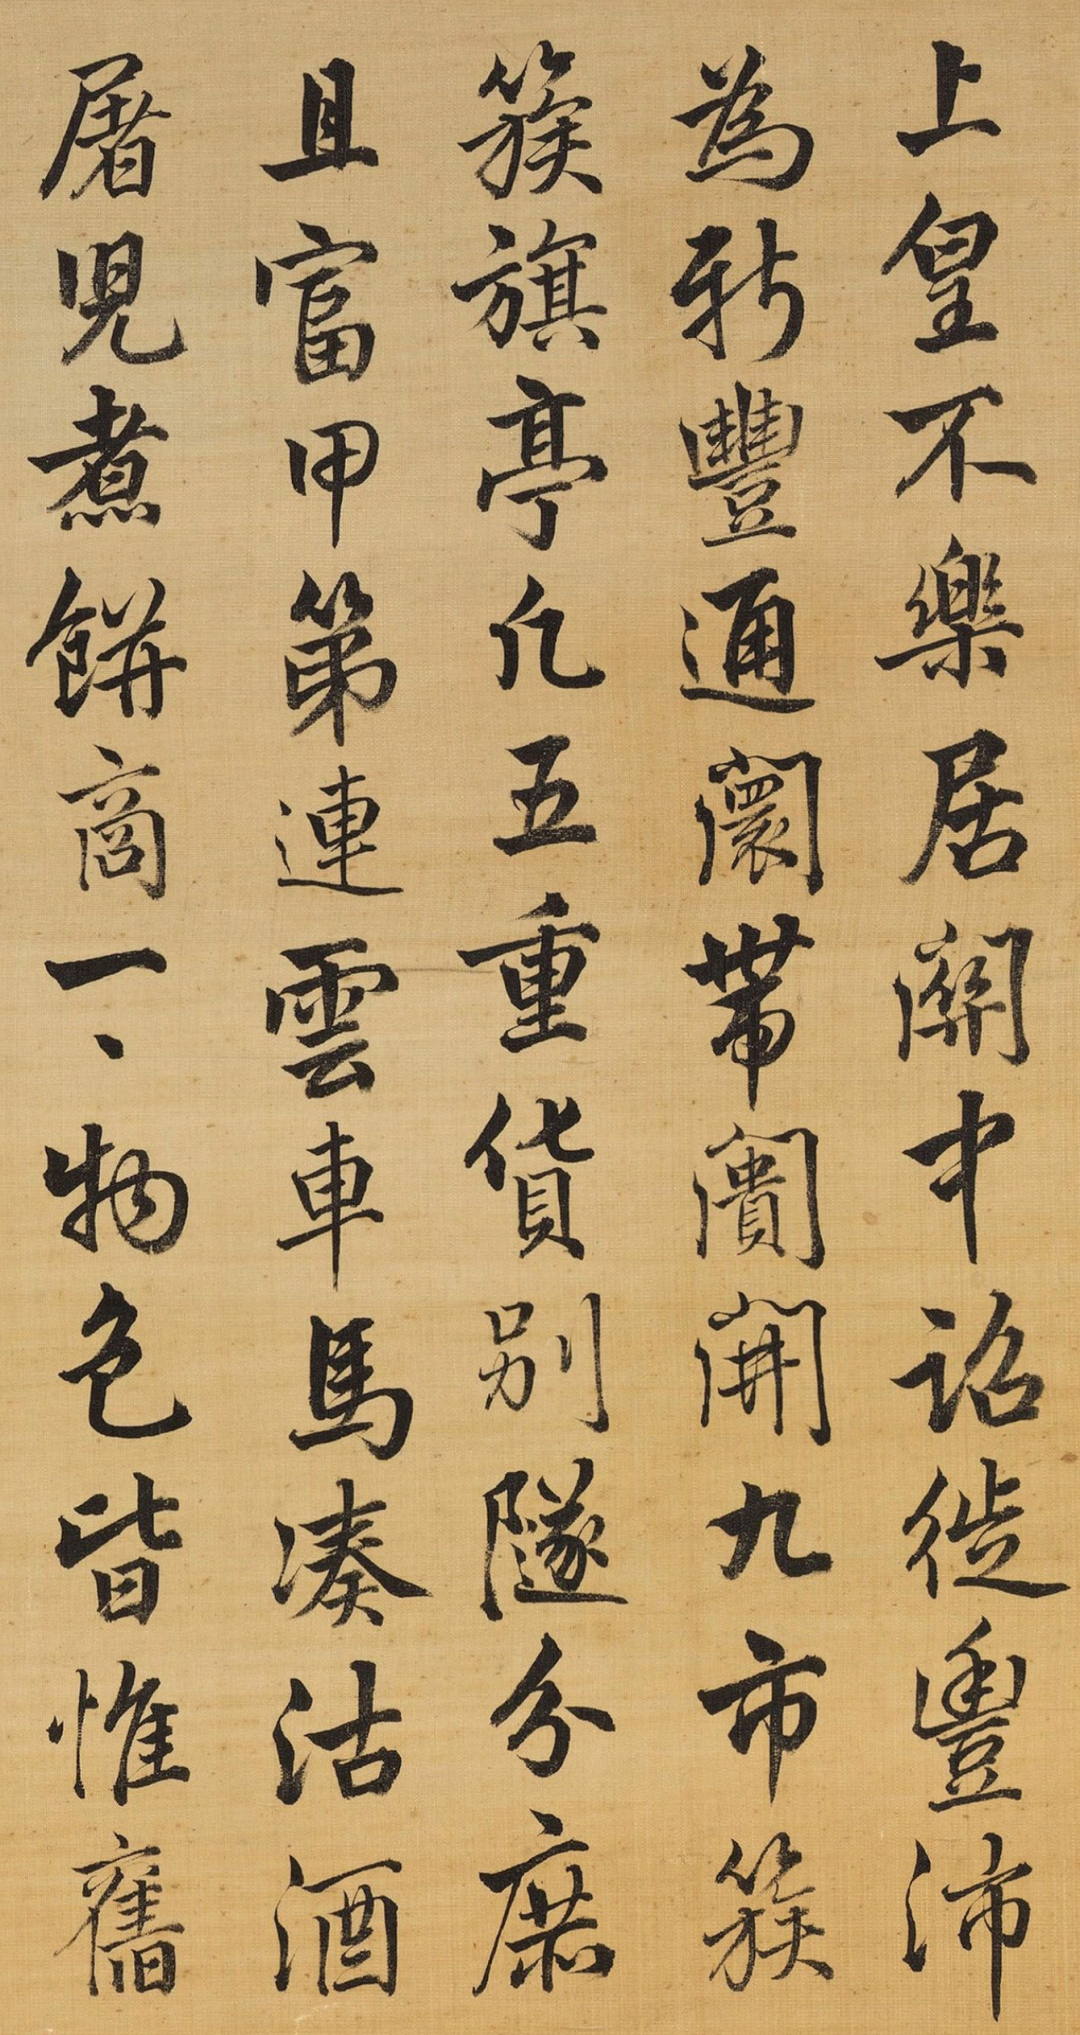 上皇不樂居關中詔徙豐沛
為新豐通闤帶闠開九市簇
簇旗亭凡五重貨別隧分廛
且富甲第連雲車馬湊沽酒
屠兒煮餅商一、物色皆惟舊